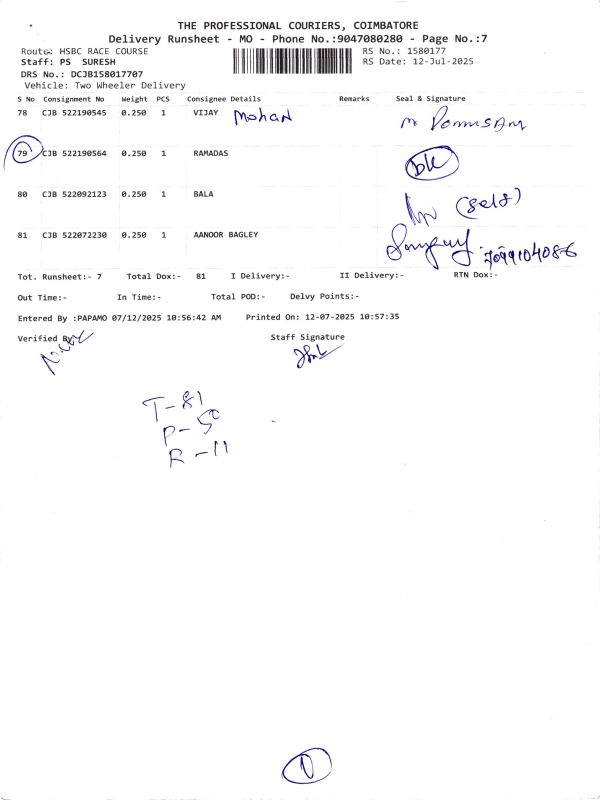 THE PROFESSIONAL COURIERS, COIMBATORE
Delivery Runsheet - MO - Phone No.:9047080280 - Page No.:7
Route: HSBC RACE COURSE
RS No.: 1580177
Staff: PS SURESH
RS Date: 12-Jul-2025
DRS No.: DCJB158017707
Vehicle: Two Wheeler Delivery
S No Consignment No Weight PCS Consignee Details Remarks Seal & Signature
78 CJB 522190545 0.250 1 VIJAY Mohan
79 CJB 522190564 0.250 1 RAMADAS
80 CJB 522092123 0.250 1 BALA (Self)
81 CJB 522072230 0.250 1 AANOOR BAGLEY 7099104086
Tot. Runsheet:- 7 Total Dox:- 81 I Delivery:- II Delivery:- RTN Dox:-
Out Time:- In Time:- Total POD:- Delvy Points:-
Entered By :PAPAMO 07/12/2025 10:56:42 AM Printed On: 12-07-2025 10:57:35
Verified By Staff Signature
T-81
P-50
R-11